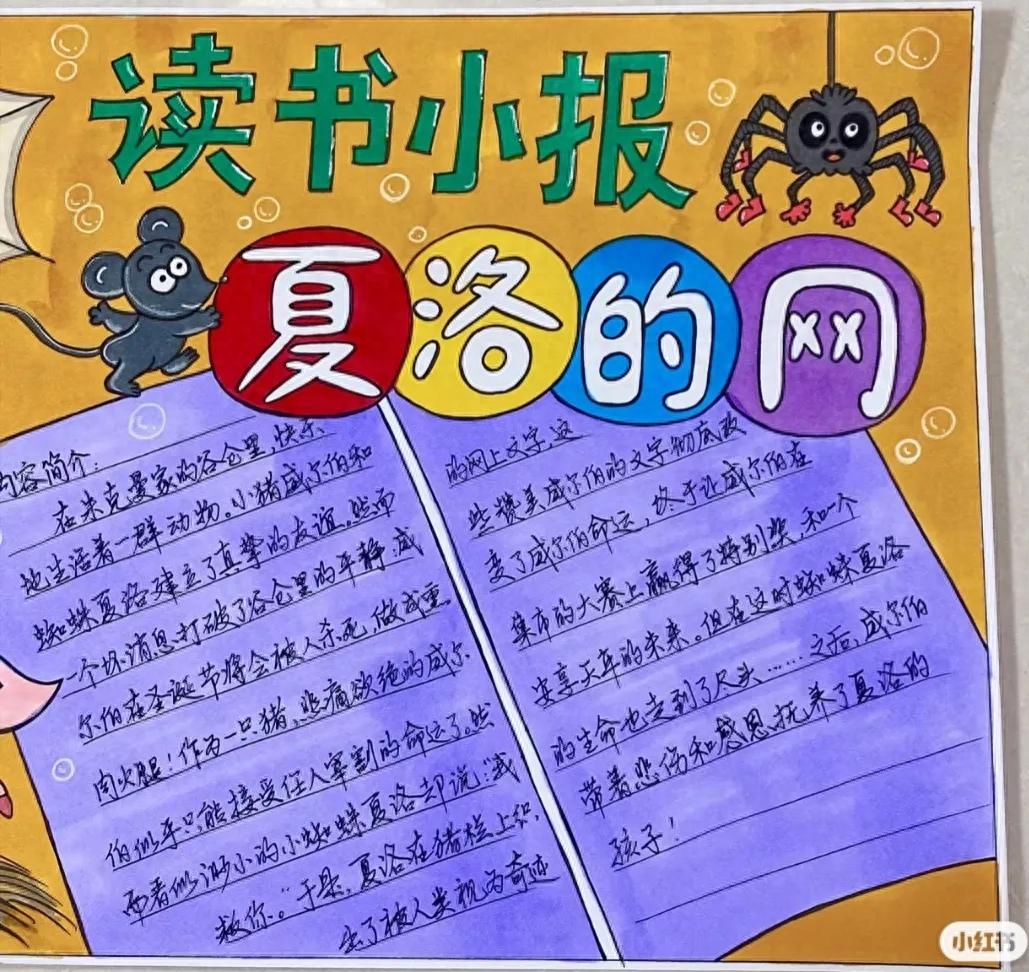 读书小报
夏洛的网
内容简介:
在朱克曼家的谷仓里,快乐
地生活着一群动物。小猪威尔伯和
蜘蛛夏洛建立了真挚的友谊。然而
一个坏消息打破了谷仓里的平静,威
尔伯在圣诞节将会被人杀死,做成熏
肉火腿!作为一只猪,悲痛欲绝的威尔
伯似乎只能接受任人宰割的命运了。然
而看似渺小的小蜘蛛夏洛却说:“我
救你。”于是,夏洛在猪栏上织
出了被人类视为奇迹
的网上文字,这
些赞美威尔伯的文字彻底改
变了威尔伯的命运,终于让威尔伯在
集市的大赛上赢得了特别奖,和一个
安享天年的未来。但在这时蜘蛛夏洛
的生命也走到了尽头……之后,威尔伯
带着悲伤和感恩,抚养了夏洛的
孩子!
小红书